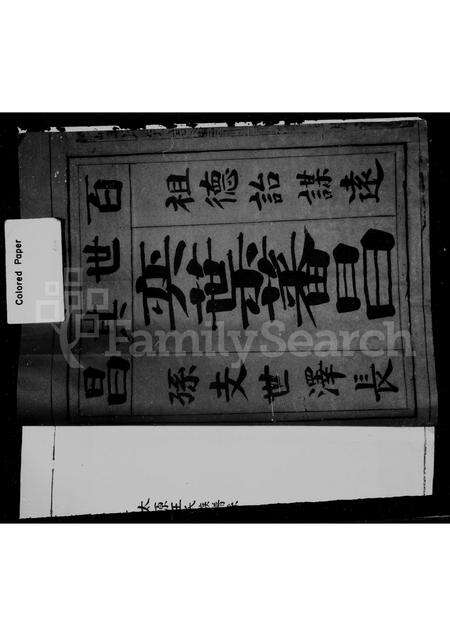 百世其昌
祖德詒謀遠
奕蕃昌
孫支世澤長
太原王氏
Colored Paper
FamilySearch